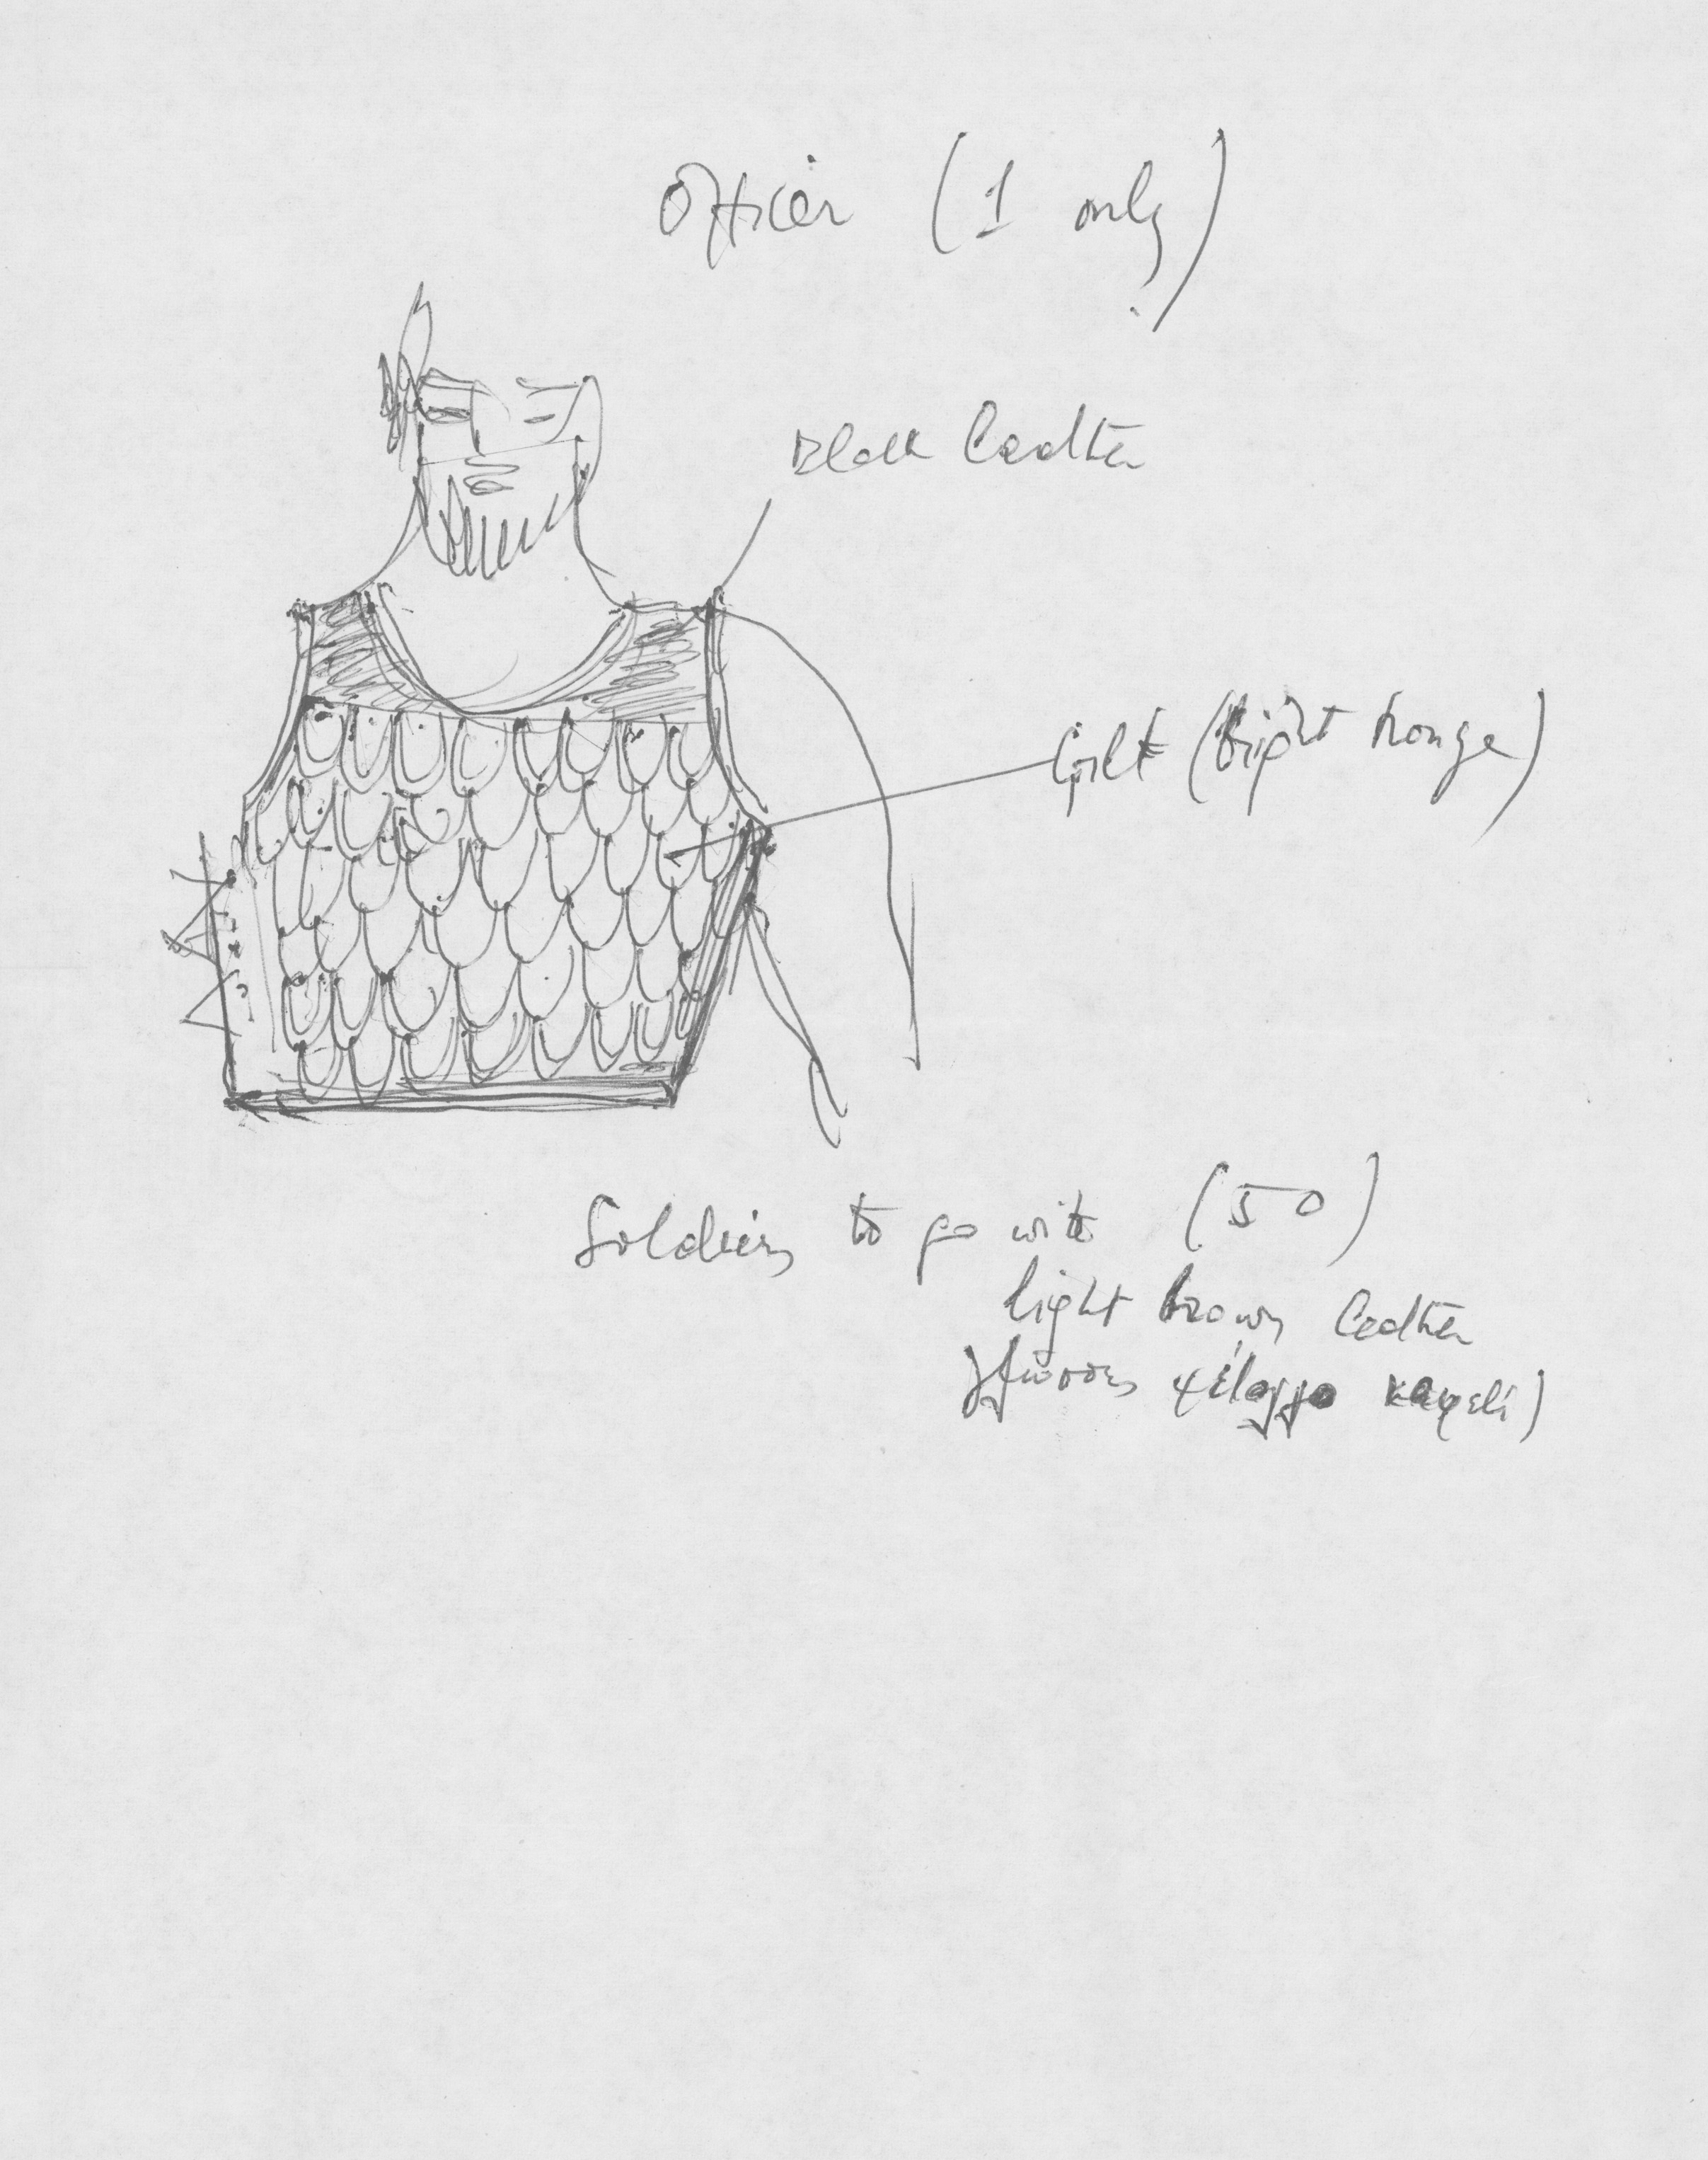 Officer (1 only)
Black Leather
Gilt (bright bronze)
Soldiers to go with (50)
light brown Leather
καφελί)